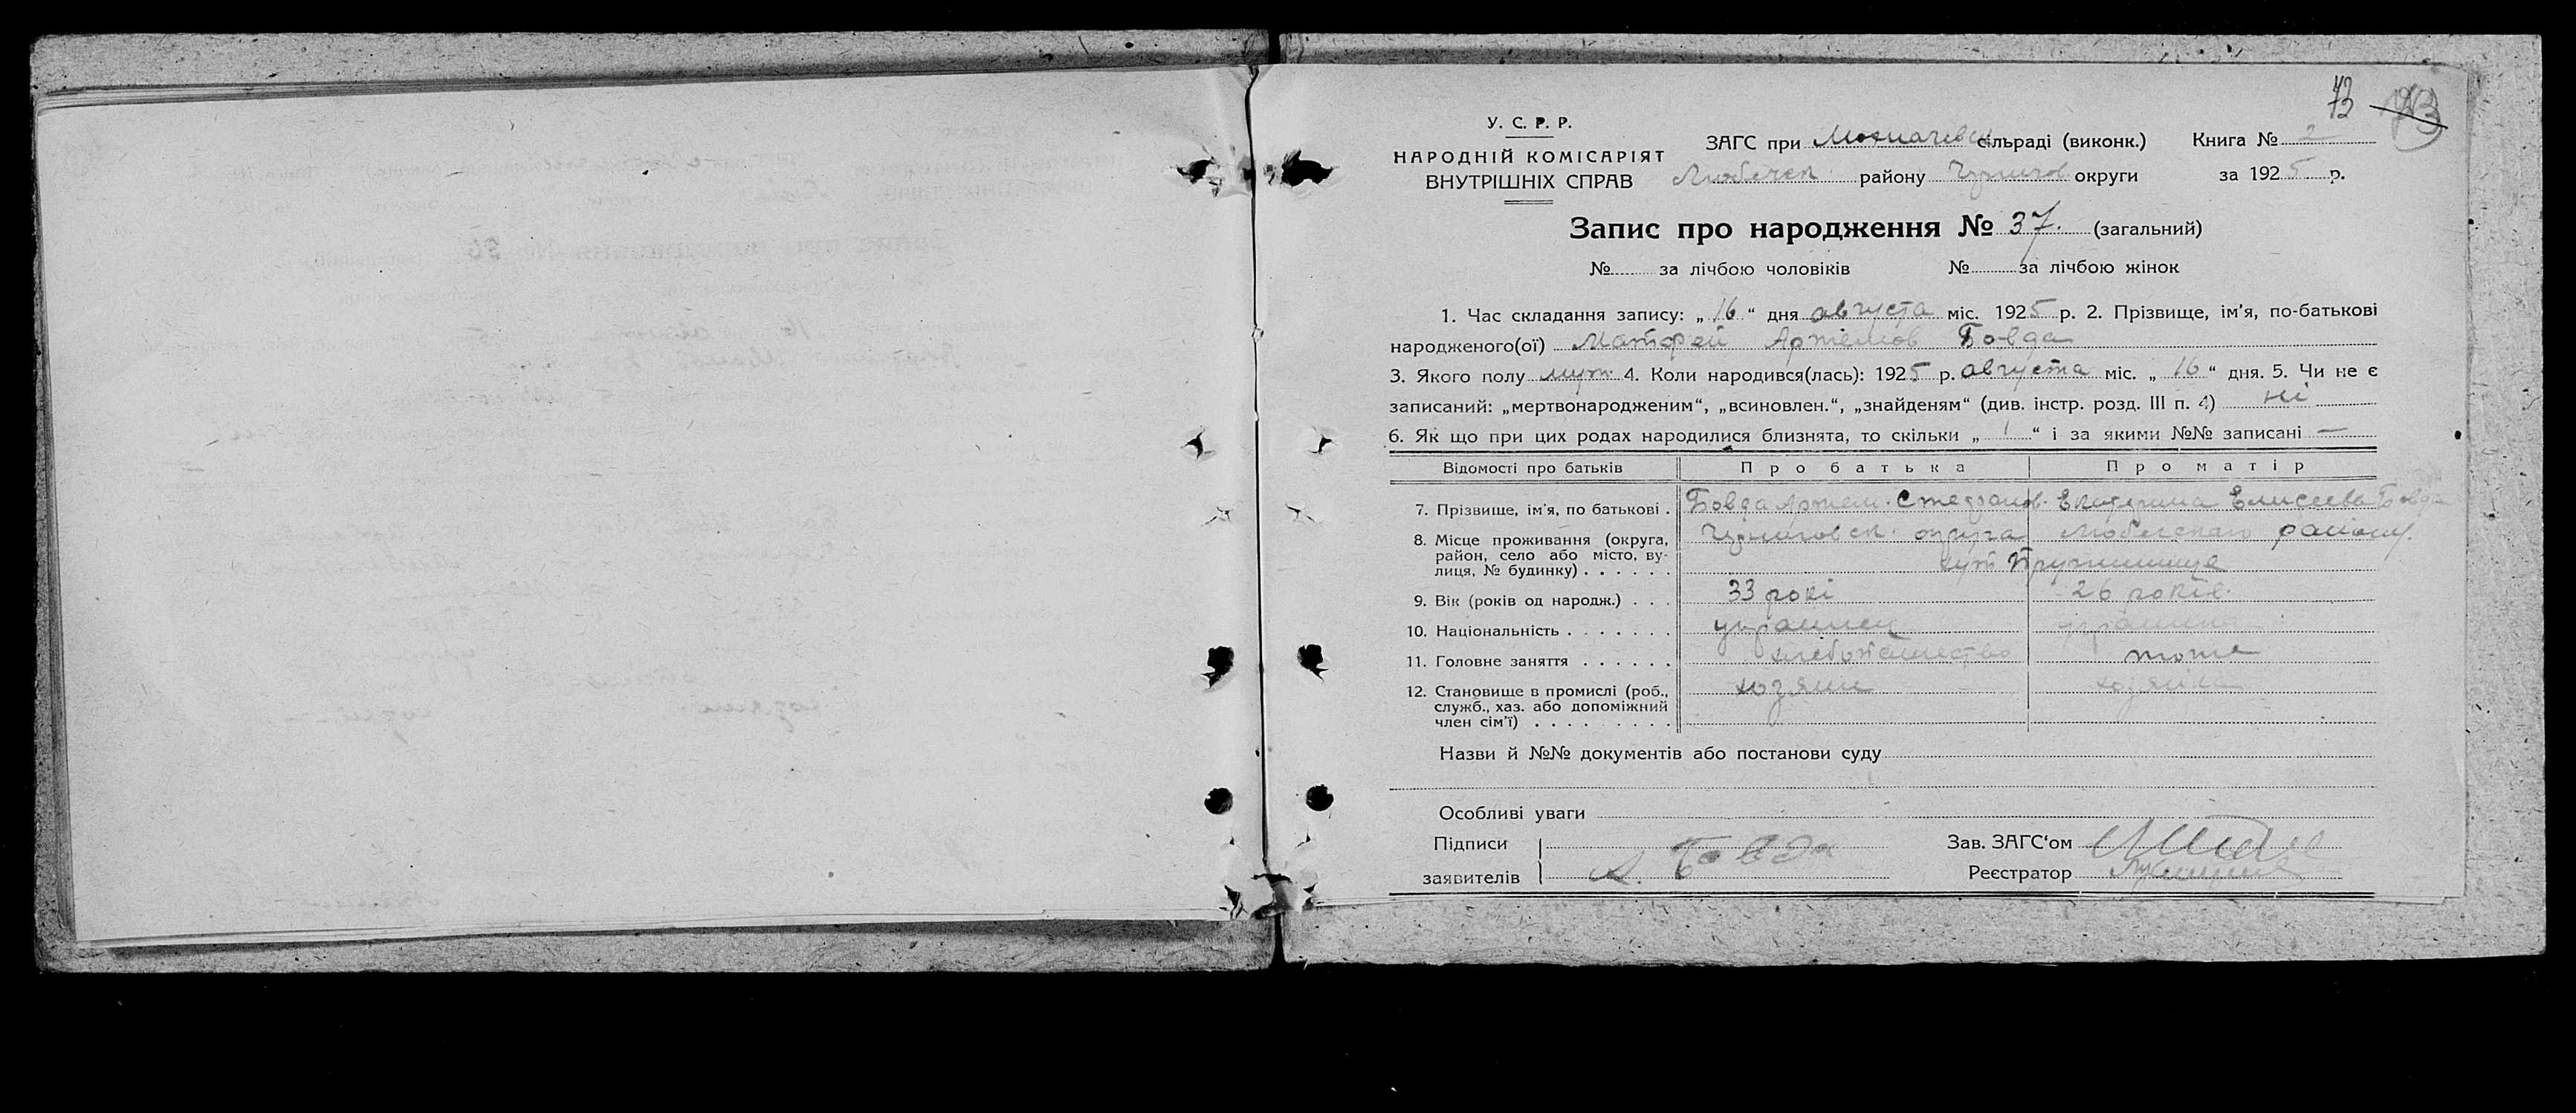 73
У. С. Р. Р.
НАРОДНІЙ КОМІСАРІЯТ
ВНУТРІШНІХ СПРАВ
ЗАГС при сільраді (виконк.) Книга № 2
Любечск. району Черниговск округи за 1925 р.
Запис про народження № 37. (загальний)
№ за лічбою чоловіків № за лічбою жінок
1. Час складання запису: „16“ дня августа міс. 1925 р. 2. Прізвище, ім'я, по-батькові
народженого(ої) Матфей Артемов Бовда
3. Якого полу муж. 4. Коли народився(лась): 1925 р. августа міс. „16“ дня. 5. Чи не є
записаний: „мертвонародженим“, „всиновлен.“, „знайденям“ (див. інстр. розд. III п. 4) ні
6. Як що при цих родах народилися близнята, то скільки „1“ і за якими №№ записані —
Відомості про батьків Про батька Про матір
7. Прізвище, ім'я, по батькові . Бовда Артем. Стефанов. Екатерина Елисеева Бовда
8. Місце проживання (округа, Черниговск. округа Любечскаго району.
район, село або місто, ву-
лиця, № будинку) . . . . . . хут
9. Вік (років од народж.) . . . 33 рокі 26 років.
10. Національність . . . . . . . украинец украинка
11. Головне заняття . . . . . . хлебопашество тоже
12. Становище в промислі (роб., хозяин хозяйка
служб., хаз. або допоміжний
член сім'ї) . . . . . . . . .
Назви й №№ документів або постанови суду
Особливі уваги
Підписи Зав. ЗАГС'ом
заявителів А. Бовда Реєстратор